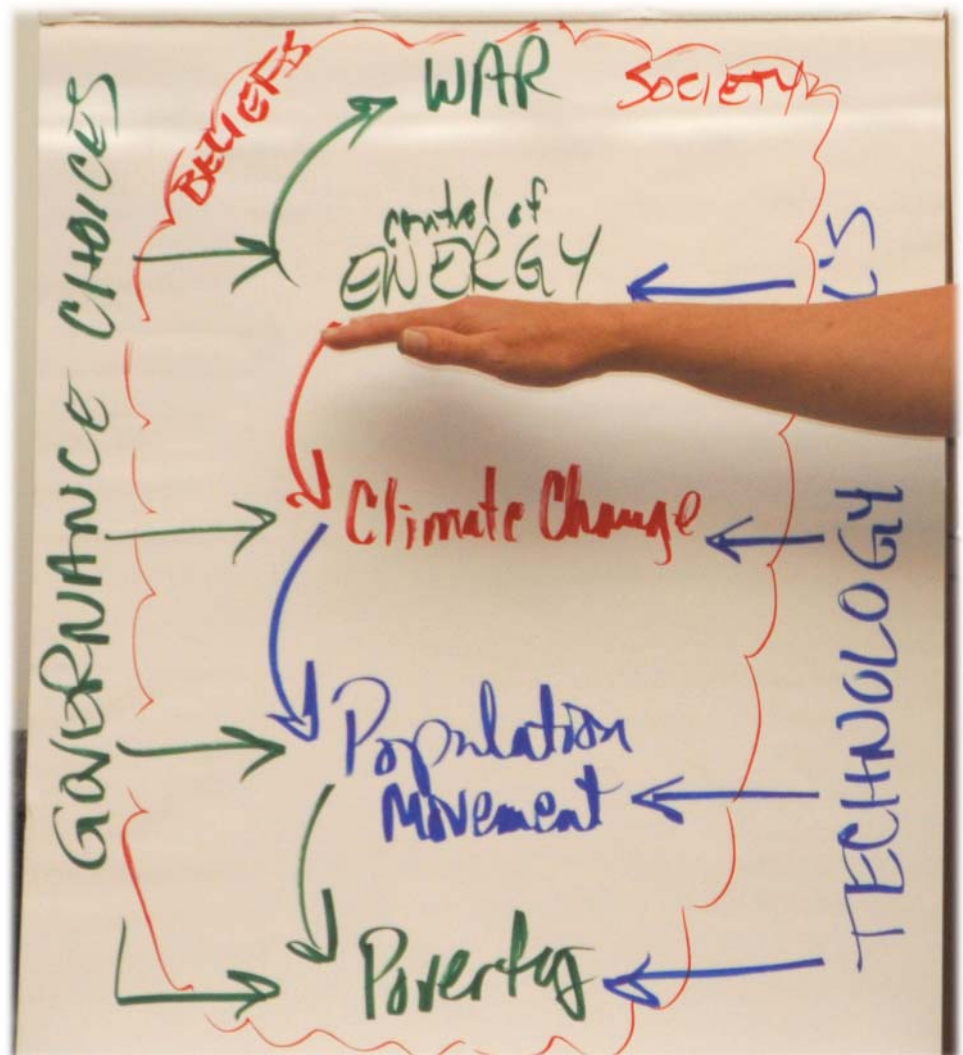 GOVERNANCE CHOICES
BELIEFS
WAR
SOCIETY
control of
ENERGY
Climate Change
Population
Movement
Poverty
TECHNOLOGY